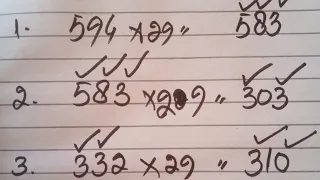 1. 594 x 29 " 583
2. 583 x 29 " 303
3. 332 x 29 " 310